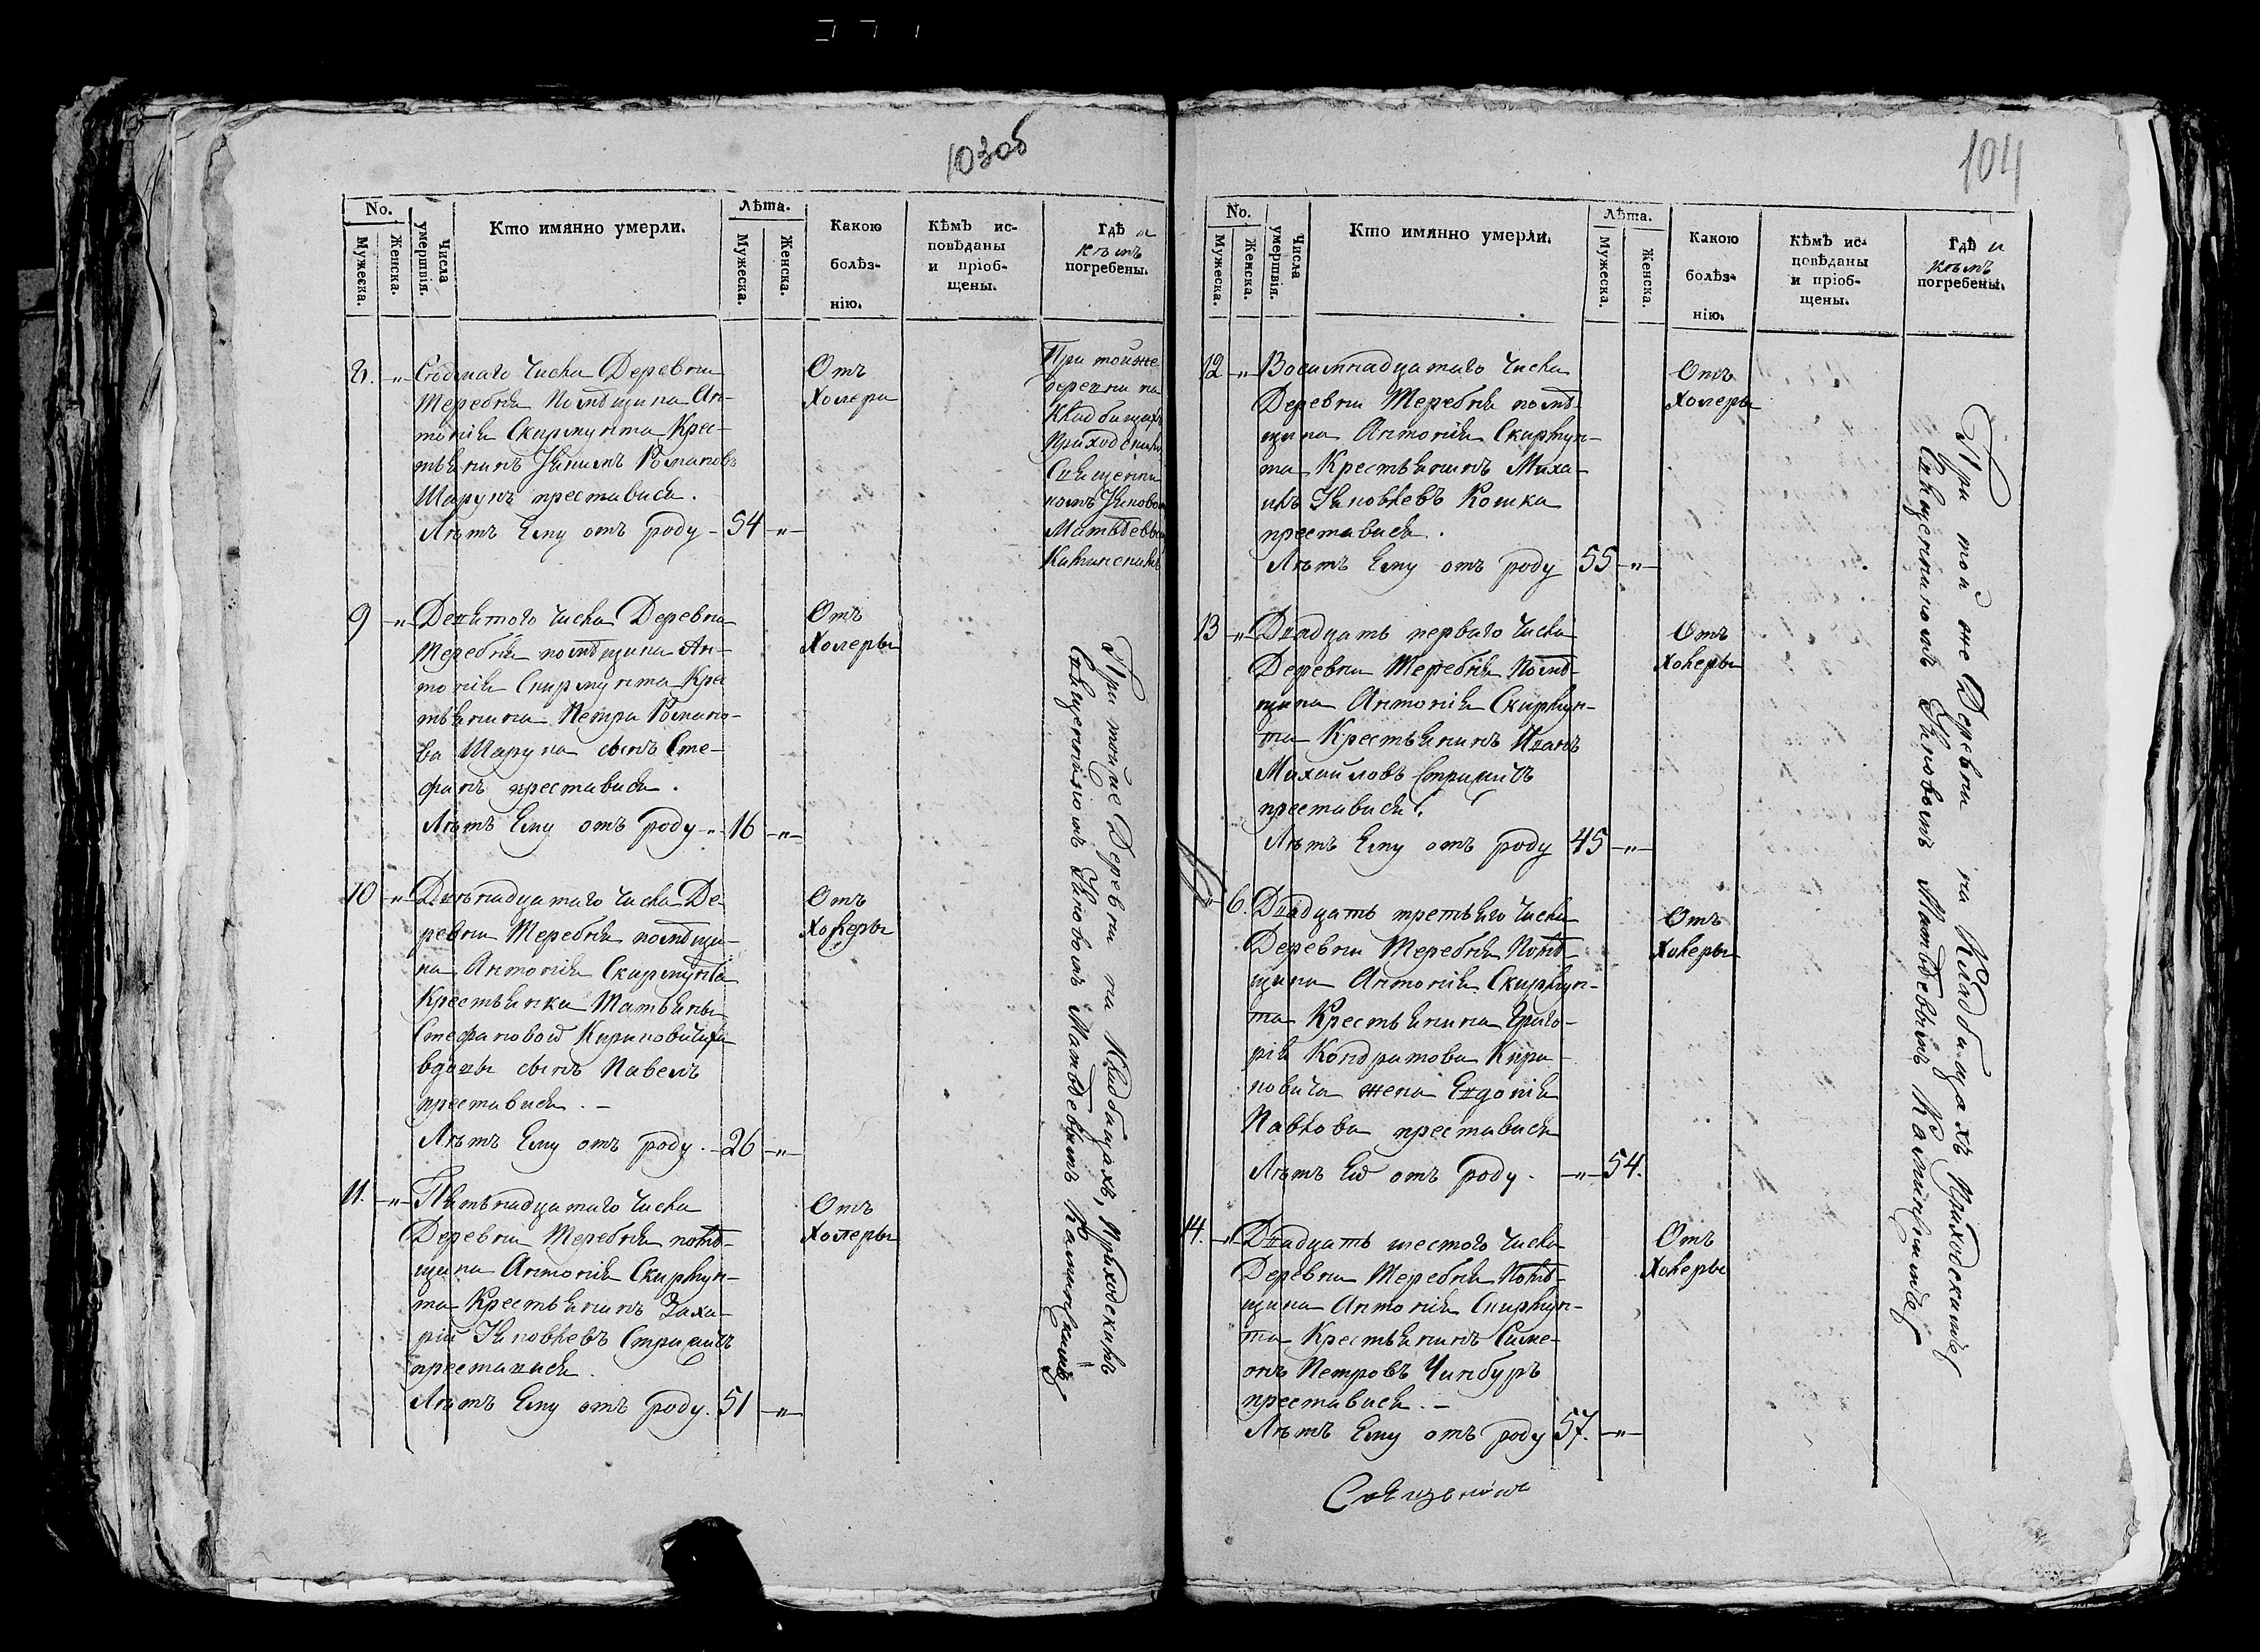 103об
No.
Мужеска.
Женска.
Числа умертвія.
Кто имянно умерли.
Лѣта.
Мужеска.
Женска.
Какою болѣз-
нію.
Кѣмъ ис-
повѣданы
и пріоб-
щены.
Гдѣ и
кѣмъ
погребены.
8. -„- Седмаго числа Деревни
Теребня Помѣщика Ан-
тонія Скирмунта Крес-
тьянинъ Іоакимъ Романовъ
Шарунъ преставися.
Лѣтъ Ему отъ роду - 54 -„-
Отъ
Холеры
При тойже
деревни на
Кладбищахъ
Приходскимъ
Священни
комъ Іаковомъ
Матѳеевымъ
9 -„- Девятого числа Деревни
Теребня помѣщика Ан-
тонія Скирмунта Крес
тьянина Петра Романо-
ва Шаруна сынъ Сте-
фанъ преставися.
Лѣтъ Ему отъ роду -„- 16 -„-
Отъ
Холеры
При тойже Деревни на Кладбищахъ, Приходскимъ
Священникомъ Іаковомъ Матѳеевымъ
10 -„- Двѣнадцатаго числа Де-
ревни Теребня помѣщи-
ка Антонія Скирмунта
Крестьянки Татьяны
Стефановой Кириловичѣ
вдовы сынъ Павелъ
преставися. -
Лѣтъ Ему отъ роду. - 26 -„-
Отъ
Холеры
11. -„- Пятьнадцатаго числа
Деревни Теребня помѣ-
щика Антонія Скирмун-
та Крестьянинъ Заха-
рій Іаковлевъ Стрижичъ
преставися.
Лѣтъ Ему отъ роду. 51 -„-
Отъ
Холеры
104
No.
Мужеска.
Женска.
Числа умертвія.
Кто имянно умерли.
Лѣта.
Мужеска.
Женска.
Какою
болѣз-
нію.
Кѣмъ ис-
повѣданы
и пріоб-
щены.
Гдѣ и
кѣмъ
погребены.
12 -„- Восимнадцатаго числа
Деревни Теребня помѣ-
щика Антонія Скирмун-
та Крестьянинъ Миха-
илъ Іаковлевъ Кошка
преставися.
Лѣтъ Ему отъ роду 55 -„-
Отъ
Холеры
При той же Деревни на Кладбищахъ Приходскимъ
Священникомъ Іаковомъ Матѳеевымъ
13 -„- Двадцать перваго числа
Деревни Теребня Помѣ-
щика Антонія Скирмун-
та Крестьянинъ Иванъ
Михайловъ Стрижичъ
преставися.
Лѣтъ Ему отъ роду 45 -„-
Отъ
Холеры
-„- 6. Двадцать третьяго числа
Деревни Теребня Помѣ-
щика Антонія Скирмун-
та Крестьянина Григо-
рія Кондратова Кири-
ловича жена Евдокія
Павлова преставися
Лѣтъ Ей отъ роду. -„- 54.
Отъ
Холеры
14. -„- Двадцать шестого числа
Деревни Теребня Помѣ-
щика Антонія Скирмун-
та Крестьянинъ Симе-
онъ Петровъ Чинбуръ
преставися. -
Лѣтъ Ему отъ роду 57. -„-
Отъ
Холеры